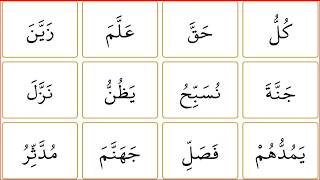 كُلُّ حَقَّ عَلَّمَ زَيَّنَ
جَنَّةَ نُسَبِّحُ يَظُنُّ نَزَّلَ
يَمُدُّهُمْ فَصَلِّ جَهَنَّمَ مُدَّثِّرُ